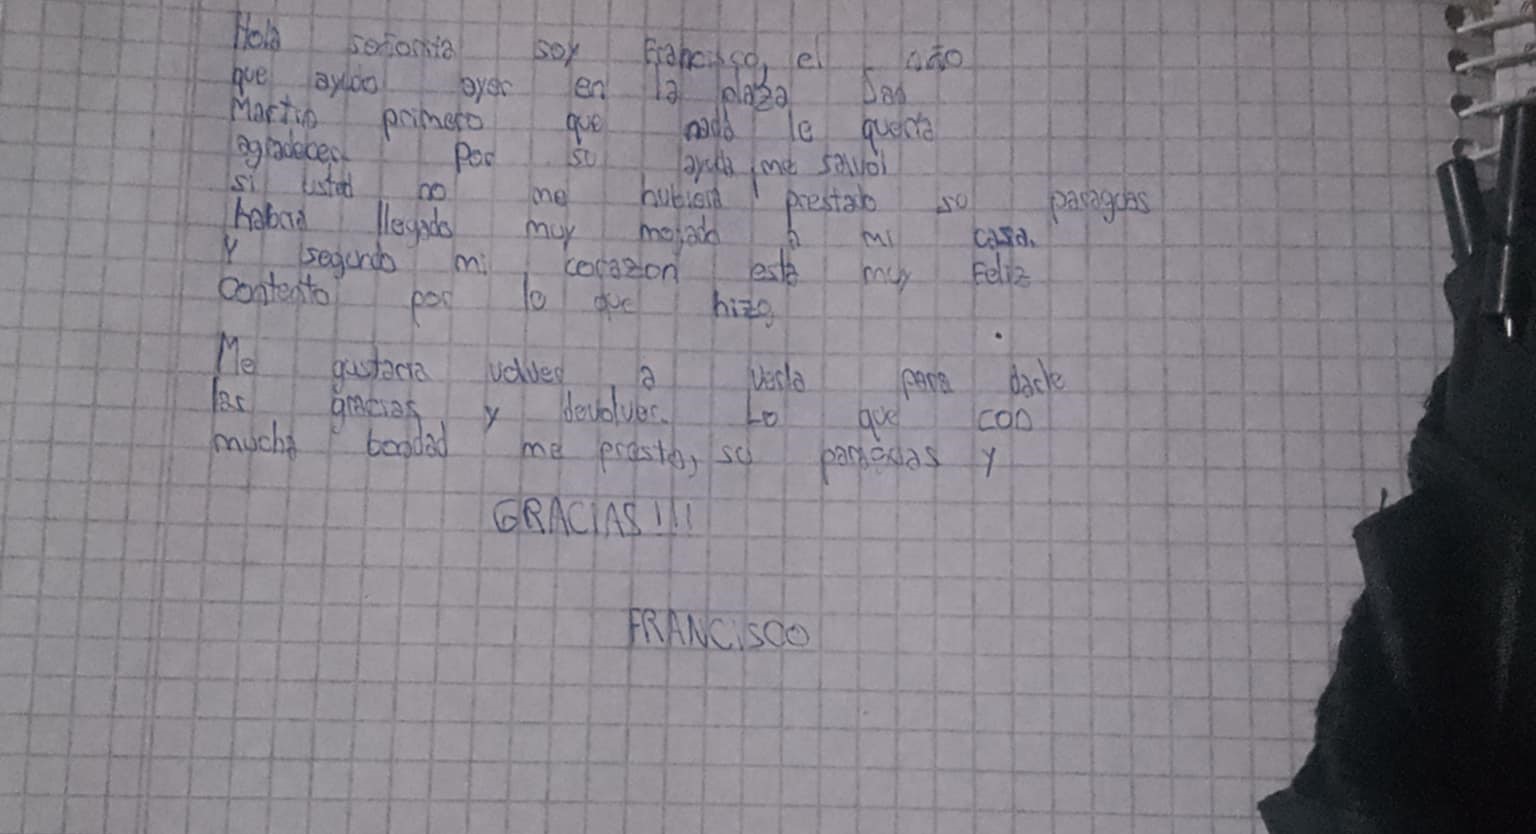 Hola señorita soy Francisco, el niño
que ayudo ayer en la plaza San
Martin primero que nada le queria
agradecer por su ayuda, me salvó!
si usted no me hubiera prestado su paraguas
habria llegado muy mojado a mi casa.
Y segundo mi corazon está muy Feliz
contento por lo que hizo
Me gustaria volver a verla para darle
las gracias y devolver. Lo que con
mucha bondad me prestó, su paraguas y
GRACIAS!!!
FRANCISCO